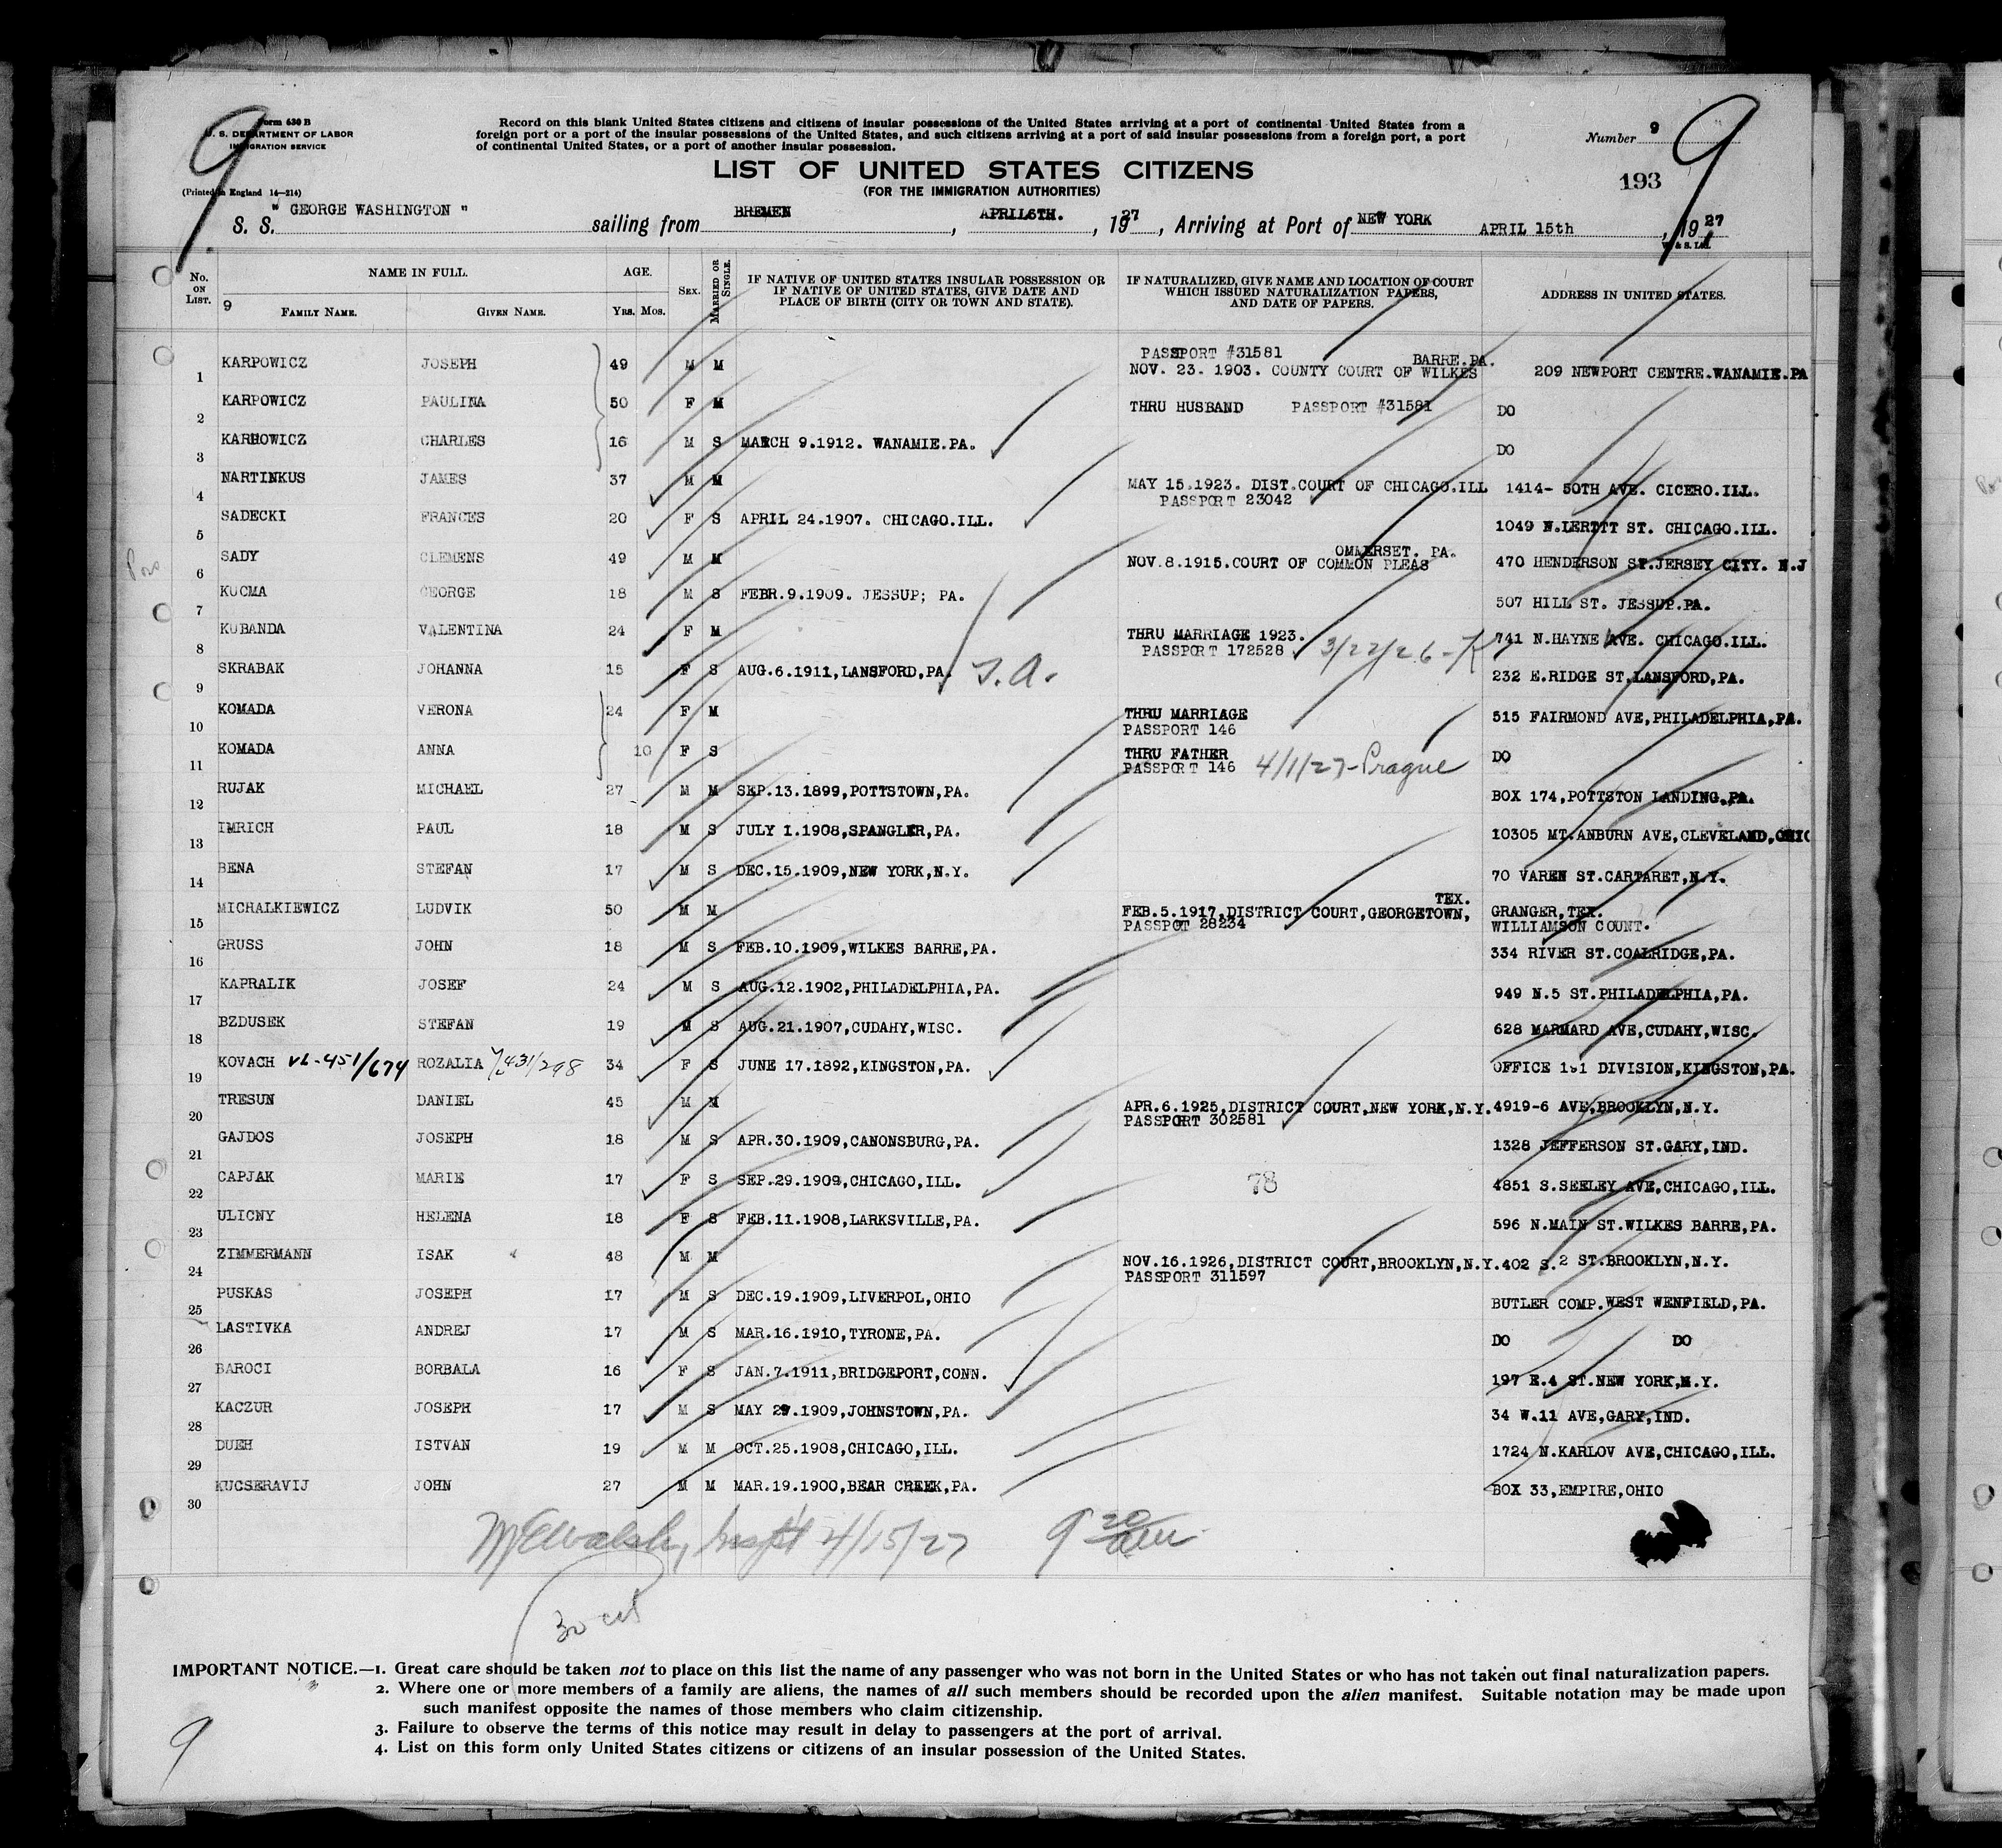 9
Form 630 B
U. S. DEPARTMENT OF LABOR
IMMIGRATION SERVICE
(Printed in England 14—214)
Record on this blank United States citizens and citizens of insular possessions of the United States arriving at a port of continental United States from a
foreign port or a port of the insular possessions of the United States, and such citizens arriving at a port of said insular possessions from a foreign port, a port
of continental United States, or a port of another insular possession.
Number 9
9
LIST OF UNITED STATES CITIZENS
(FOR THE IMMIGRATION AUTHORITIES)
193
S. S. " GEORGE WASHINGTON " sailing from BREMEN, APRIL6TH., 1927, Arriving at Port of NEW YORK APRIL 15th, 1927
No. ON LIST. NAME IN FULL. AGE. SEX. MARRIED OR SINGLE. IF NATIVE OF UNITED STATES INSULAR POSSESSION OR IF NATIVE OF UNITED STATES, GIVE DATE AND PLACE OF BIRTH (CITY OR TOWN AND STATE). IF NATURALIZED, GIVE NAME AND LOCATION OF COURT WHICH ISSUED NATURALIZATION PAPERS, AND DATE OF PAPERS. ADDRESS IN UNITED STATES.
9 FAMILY NAME. GIVEN NAME. Yrs. Mos.
1 KARPOWICZ JOSEPH 49 M M PASSPORT #31581 NOV. 23. 1903. COUNTY COURT OF WILKES BARRE.PA. 209 NEWPORT CENTRE.WANAMIE.PA
2 KARPOWICZ PAULINA 50 F M THRU HUSBAND PASSPORT #31581 DO
3 KARHOWICZ CHARLES 16 M S MARCH 9.1912. WANAMIE.PA. DO
4 NARTINKUS JAMES 37 M M MAY 15.1923. DIST.COURT OF CHICAGO.ILL PASSPORT 23042 1414- 50TH AVE. CICERO.ILL.
5 SADECKI FRANCES 20 F S APRIL 24.1907. CHICAGO.ILL. 1049 N.LERTTT ST. CHICAGO.ILL.
6 SADY CLEMENS 49 M M NOV.8.1915.COURT OF COMMON PLEAS OMMERSET. PA. 470 HENDERSON ST.JERSEY CITY. N.J
7 KUCMA GEORGE 18 M S FEBR.9.1909. JESSUP; PA. 507 HILL ST. JESSUP.PA.
8 KUBANDA VALENTINA 24 F M THRU MARRIAGE 1923. PASSPORT 172528 3/22/26-K 741 N.HAYNE AVE. CHICAGO.ILL.
9 SKRABAK JOHANNA 15 F S AUG.6.1911,LANSFORD,PA. T.A. 232 E.RIDGE ST.LANSFORD,PA.
10 KOMADA VERONA 24 F M THRU MARRIAGE PASSPORT 146 515 FAIRMOND AVE,PHILADELPHIA,PA.
11 KOMADA ANNA 10 F S THRU FATHER PASSPORT 146 4/1/27-Prague DO
12 RUJAK MICHAEL 27 M M SEP.13.1899,POTTSTOWN,PA. BOX 174,POTTSTON LANDING.PA.
13 IMRICH PAUL 18 M S JULY 1.1908,SPANGLER,PA. 10305 MT.ANBURN AVE,CLEVELAND,OHIO
14 BENA STEFAN 17 M S DEC.15.1909,NEW YORK,N.Y. 70 VAREN ST.CARTARET,N.Y.
15 MICHALKIEWICZ LUDVIK 50 M M FEB.5.1917,DISTRICT COURT,GEORGETOWN, TEX. PASSPOT 28234 GRANGER,TEX. WILLIAMSON COUNT.
16 GRUSS JOHN 18 M S FEB.10.1909,WILKES BARRE,PA. 334 RIVER ST.COALRIDGE,PA.
17 KAPRALIK JOSEF 24 M S AUG.12.1902,PHILADELPHIA,PA. 949 N.5 ST.PHILADELPHIA,PA.
18 BZDUSEK STEFAN 19 M S AUG.21.1907,CUDAHY,WISC. 628 MARMARD AVE,CUDAHY,WISC.
19 KOVACH VL-451/674 ROZALIA 431/298 34 F S JUNE 17.1892,KINGSTON,PA. OFFICE 191 DIVISION,KINGSTON,PA.
20 TRESUN DANIEL 45 M M APR.6.1925,DISTRICT COURT,NEW YORK,N.Y. PASSPORT 302581 4919-6 AVE,BROOKLYN,N.Y.
21 GAJDOS JOSEPH 18 M S APR.30.1909,CANONSBURG,PA. 1328 JEFFERSON ST.GARY,IND.
22 CAPJAK MARIE 17 F S SEP.29.1909,CHICAGO,ILL. 78 4851 S.SEELEY AVE,CHICAGO,ILL.
23 ULICNY HELENA 18 F S FEB.11.1908,LARKSVILLE,PA. 596 N.MAIN ST.WILKES BARRE,PA.
24 ZIMMERMANN ISAK 48 M M NOV.16.1926,DISTRICT COURT,BROOKLYN,N.Y. PASSPORT 311597 402 S.2 ST.BROOKLYN,N.Y.
25 PUSKAS JOSEPH 17 M S DEC.19.1909,LIVERPOL,OHIO BUTLER COMP.WEST WENFIELD,PA.
26 LASTIVKA ANDREJ 17 M S MAR.16.1910,TYRONE,PA. DO DO
27 BAROCI BORBALA 16 F S JAN.7.1911,BRIDGEPORT,CONN. 197 E.4 ST.NEW YORK,N.Y.
28 KACZUR JOSEPH 17 M S MAY 29.1909,JOHNSTOWN,PA. 34 W.11 AVE,GARY,IND.
29 DUEH ISTVAN 19 M M OCT.25.1908,CHICAGO,ILL. 1724 N.KARLOV AVE,CHICAGO,ILL.
30 KUCSERAVIJ JOHN 27 M M MAR.19.1900,BEAR CREEK,PA. BOX 33,EMPIRE,OHIO
Walsh, 4/15/27 9 20 am
30
IMPORTANT NOTICE.—1. Great care should be taken not to place on this list the name of any passenger who was not born in the United States or who has not taken out final naturalization papers.
2. Where one or more members of a family are aliens, the names of all such members should be recorded upon the alien manifest. Suitable notation may be made upon
such manifest opposite the names of those members who claim citizenship.
3. Failure to observe the terms of this notice may result in delay to passengers at the port of arrival.
4. List on this form only United States citizens or citizens of an insular possession of the United States.
9